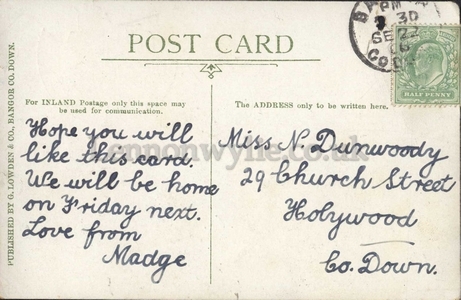 POST CARD
For INLAND Postage only this space may
be used for communication.
The ADDRESS only to be written here.
Hope you will
like this card.
We will be home
on Friday next.
Love from
Madge
Miss N. Dunwoody
29 Church Street
Holywood
Co. Down.
PUBLISHED BY G. LOWDEN & CO., BANGOR CO. DOWN.
PM
30
SE 22
HALF PENNY